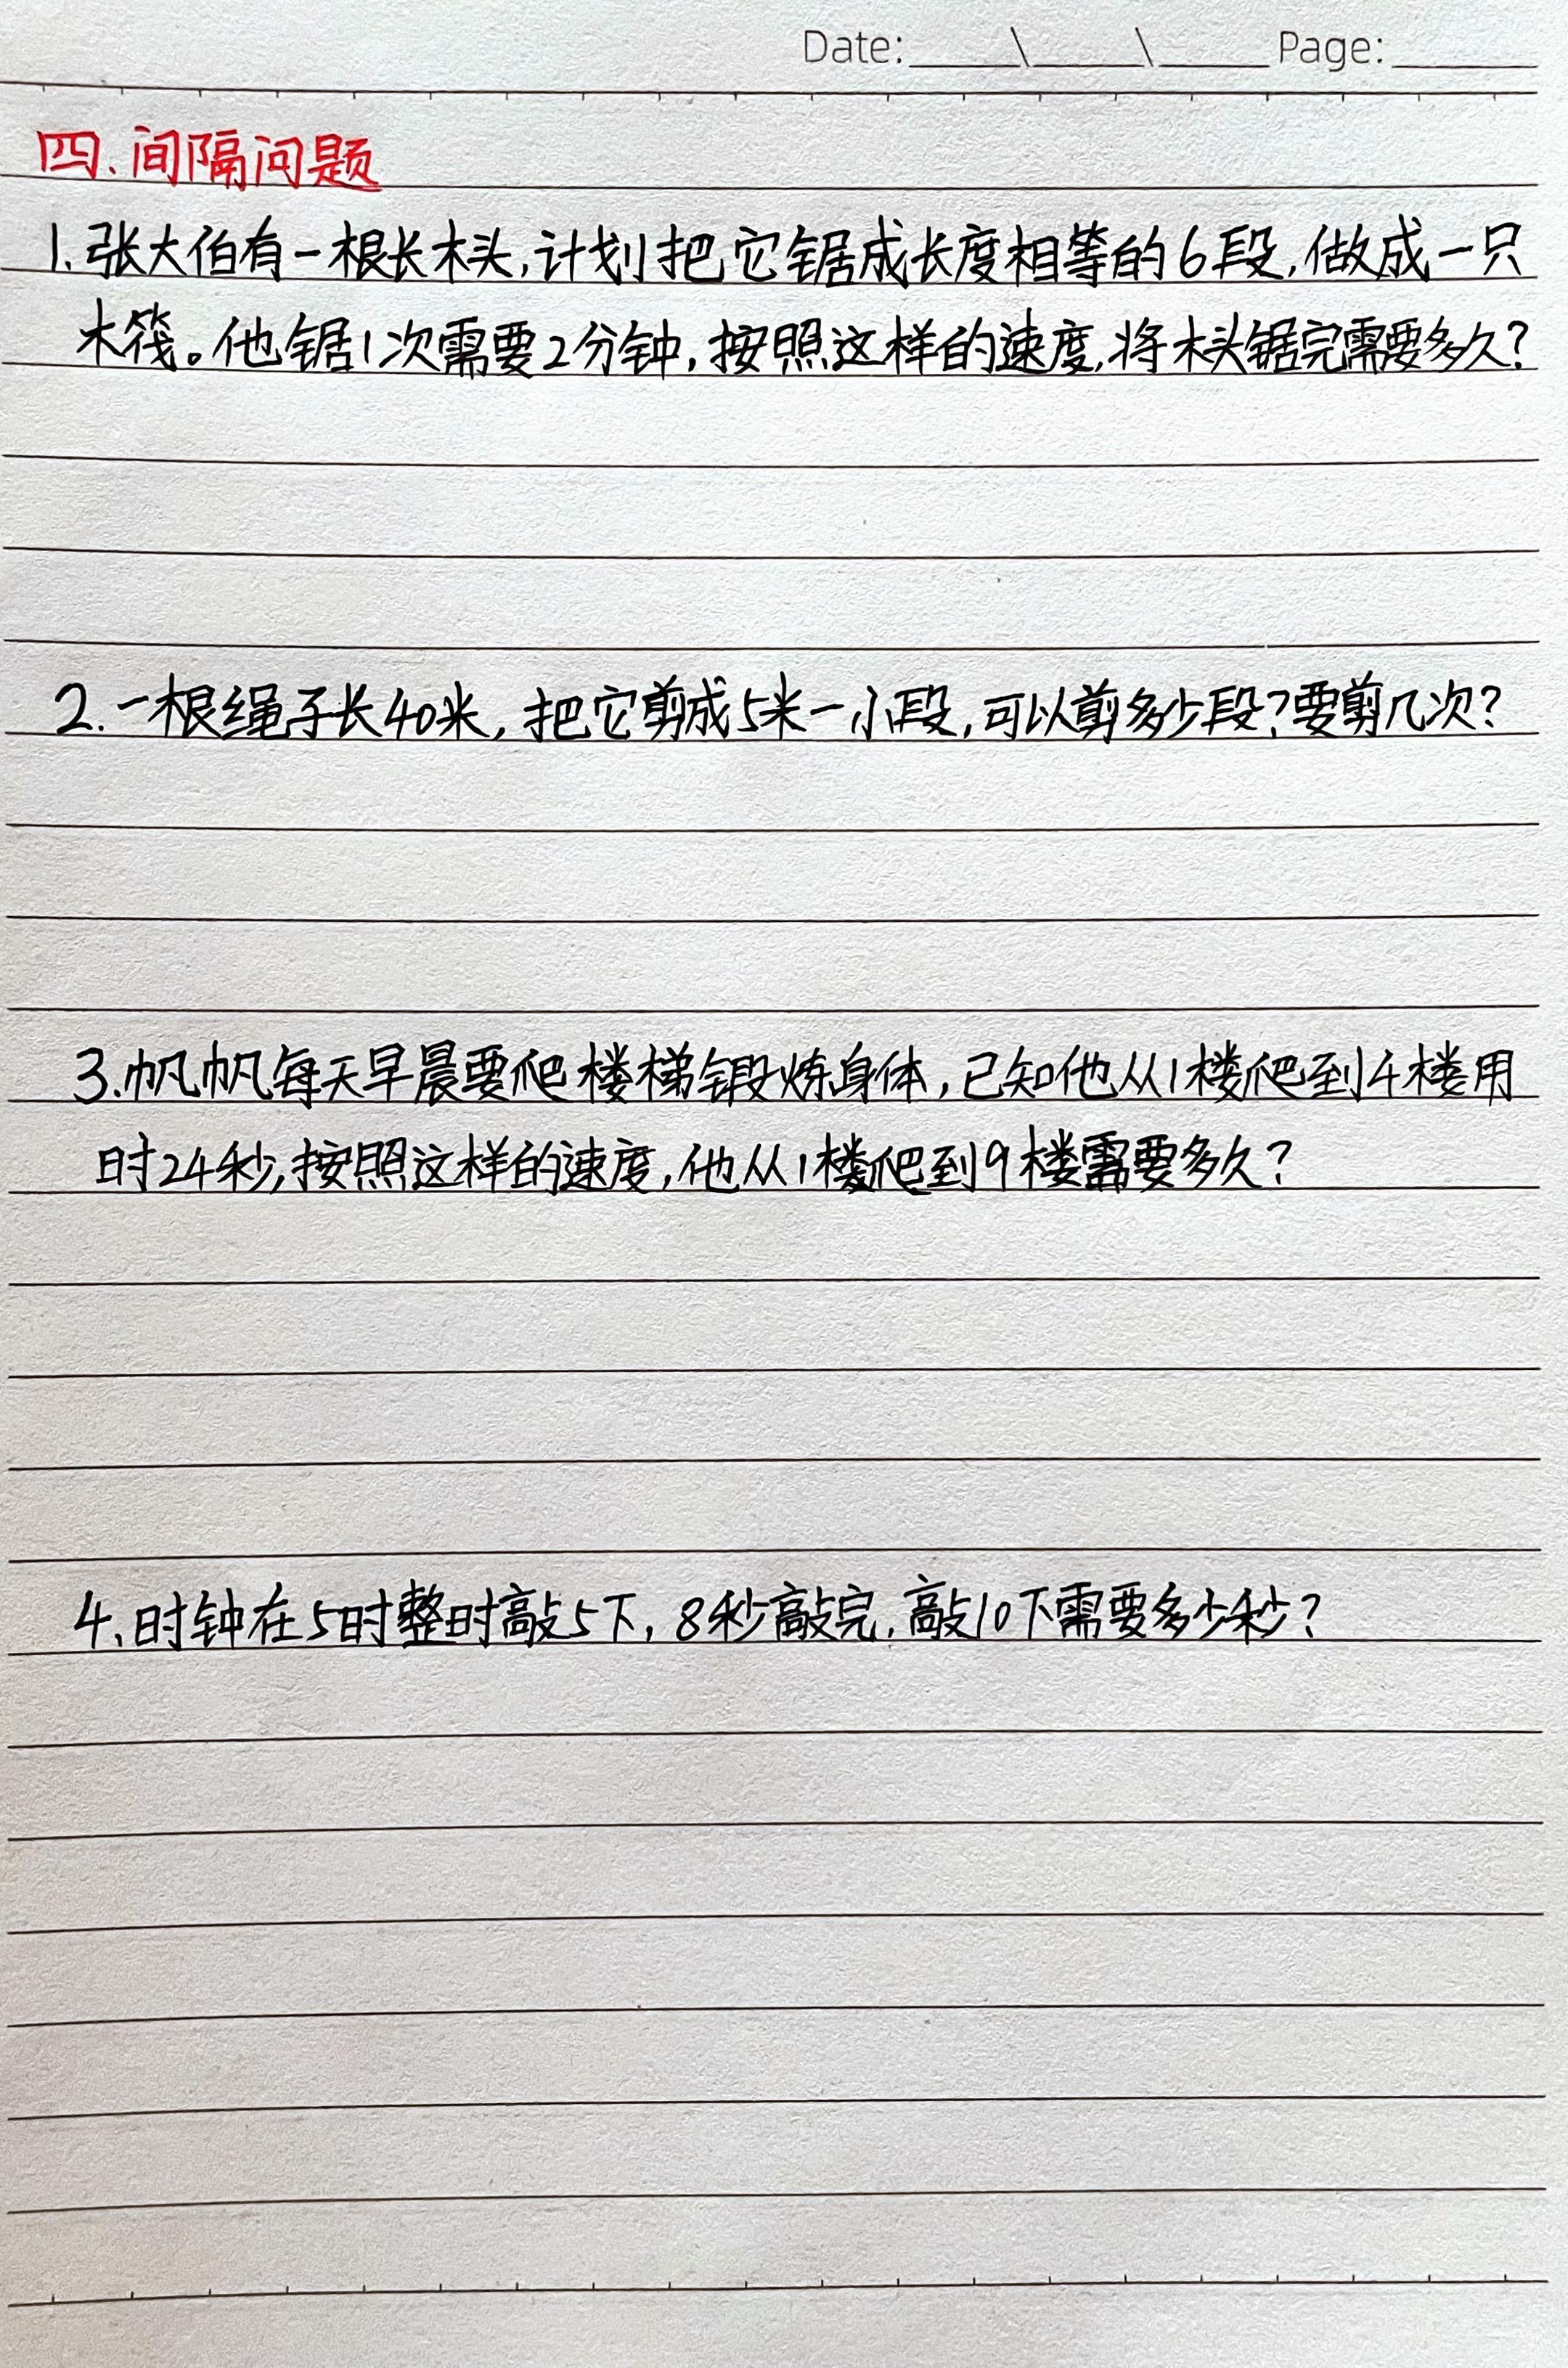 Date:____\____\____Page:______
四、间隔问题
1.张大伯有一根长木头,计划把它锯成长度相等的6段,做成一只
木筏。他锯1次需要2分钟,按照这样的速度,将木头锯完需要多久?
2.一根绳子长40米,把它剪成5米一小段,可以剪多少段?要剪几次?
3.帆帆每天早晨要爬楼梯锻炼身体,已知他从1楼爬到4楼用
时24秒,按照这样的速度,他从1楼爬到9楼需要多久?
4、时钟在5时整时敲5下,8秒敲完,敲10下需要多少秒?